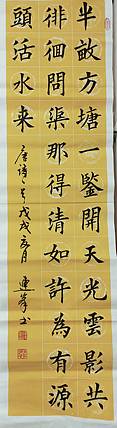 半畝方塘一鑒開天光雲影共
徘徊問渠那得清如許為有源
頭活水来
唐诗一首戊戌月連峯书